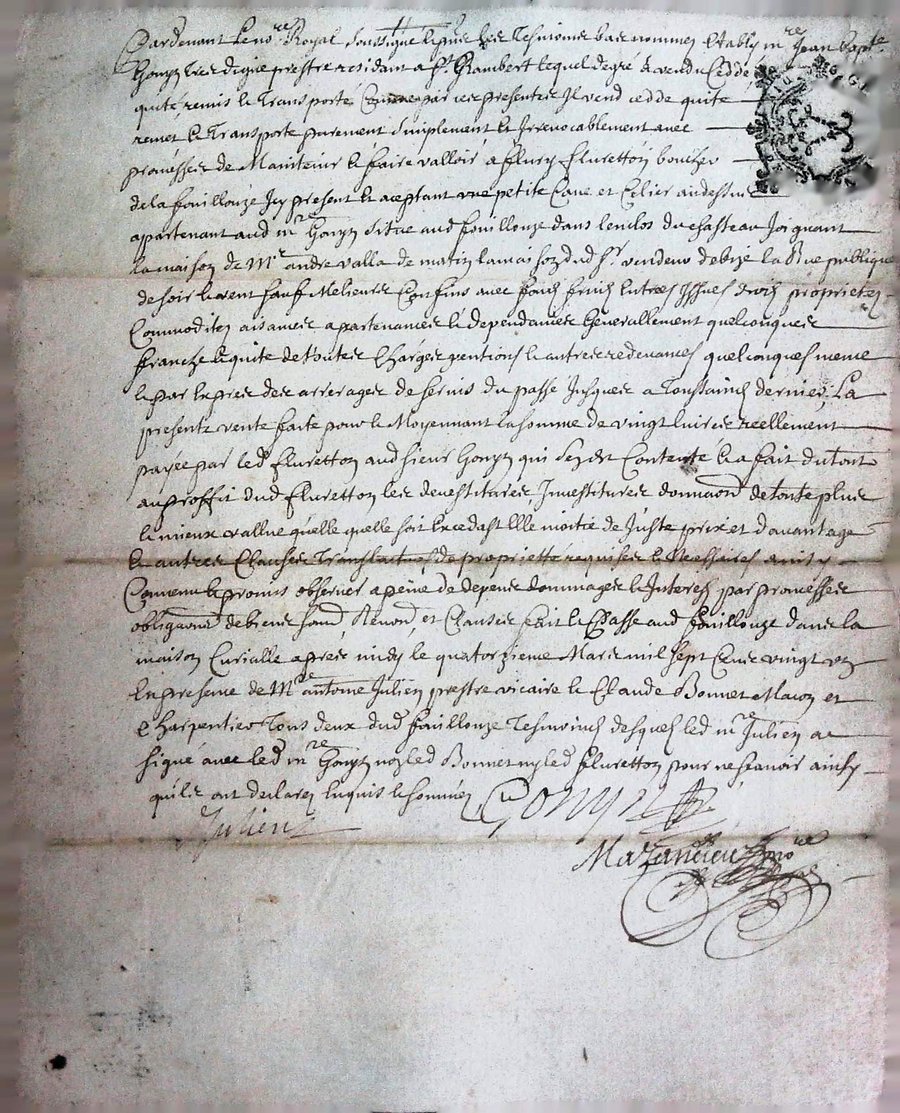 Pardevant Le no.re Royal soussigné et presens les tesmoins bas nommes Estably m.re Jean Bapt.te
Gonyn tres digne prestre residant a St Rambert lequel de gré a vendu cedde
quité, remis et transporté Comme par ces presentes Il vend cedde quite
remet et transporte purement simplement et Irrevocablement avec
promesses de Maintenir et faire valloir a fleury fluretton
de la fouillouze Icy present et aceptant une petite Cave et Celier au dessus
apartenant aud m.re Gonyn situe aud fouillouze dans lenclos du chasteau Joignant
la maison de M.re andre valla de matin la maison dud s.r vendeur de bize la Rue publique
de soir et vent sauf Melieurs Confins avec fonds fruits Entrees Issues droits proprietez
Commoditez aisances apartenances et dependances Generallement quelconques
franche et quite de toutes Charges pentions et autres redevances quelconques meme
et par Expres des arrerages de servis du passe Jusques a Toussaincts dernier, La
presente vente faite pour et Moyennant la somme de vingt livres reellement
payée par led fluretton aud sieur Gonyn qui sen est Contenté et a fait du tout
au proffit dud fluretton les devestitures Investitures donnaon de toute plus
et mieux vallue quelle quelle soit Excedast Elle moitie de Juste prix et davantage
et autres Clauses translatives de proprietté requises et Necessaires ainsy
Convenu et promis observer a peine de depens dommages et Interests par promesses
obligaons de biens soum. Renon. et Clauses fait et Passe aud fouillouze dans la
maison Curialle apres midy le quatorzieme Mars mil sept Cens vingt un
En presence de M.re antoine Julien prestre vicaire et Claude Bonnet Macon et
Charpentier tous deux dud fouillouze tesmoins desquels led m.re Julien a
signé avec led m.re Gonyn non led Bonnet ny led fluretton pour ne scavoir ainsy
quils ont declarez Enquis et sommes
Gonyn
Julien
Mazandieu no.re